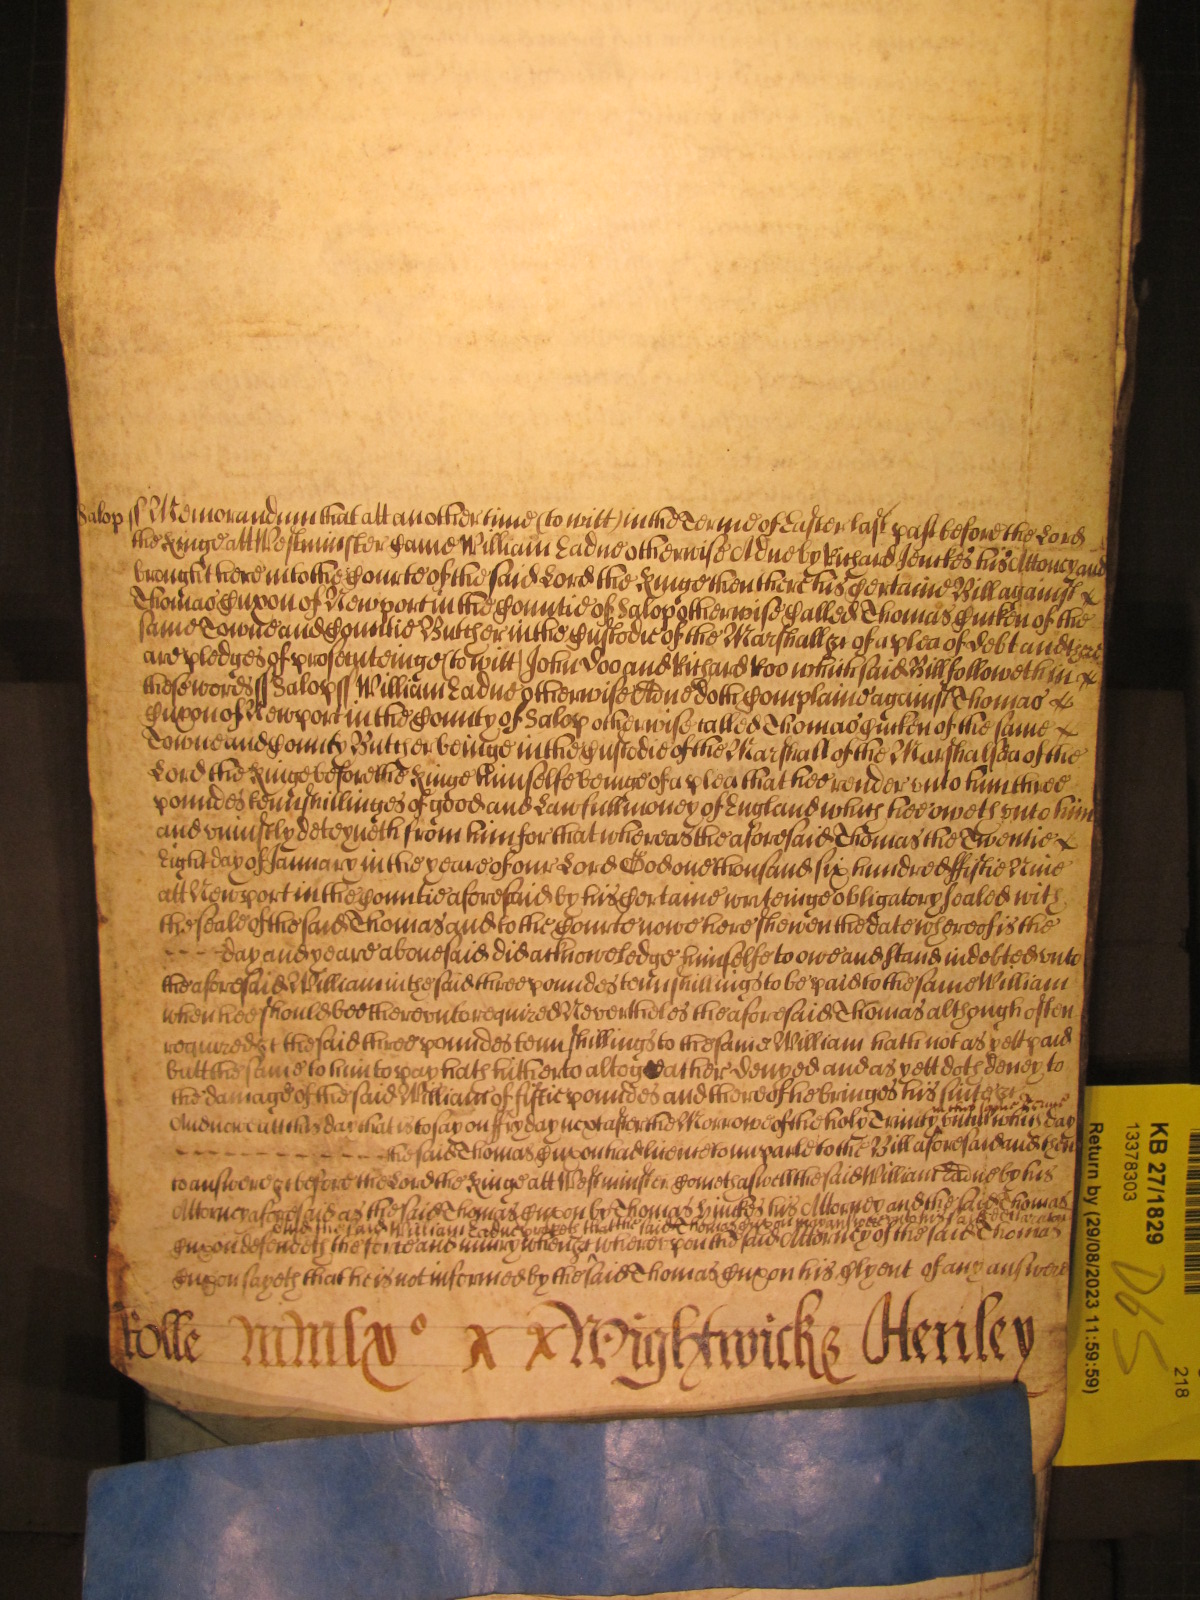 Salop ss Memorandum that att another time (to witt) in the Terme of Easter last past before the Lord
the Kinge att Westminster Came William Eadne otherwise Adne by Richard Jenckes his Attorney and
brought here into the Courte of the said Lord the Kinge then there his Certaine Bill against x
Thomas Cuxon of Newport in the Countie of Salop otherwise Called Thomas Cuxen of the
same Towne and Countie Butcher in the Custodie of the Marshall &c of a plea of debt and there
are pledges of prosecuteinge (to witt) John Doo and Richard Roo which said Bill followeth in x
these words ss Salop ss William Eadne otherwise Adne doth Complaine against Thomas x
Cuxon of Newport in the County of Salop otherwise called Thomas Cuxen of the same x
Towne and County Butcher beinge in the Custodie of the Marshall of the Marshalsea of the
Lord the Kinge before the Kinge himselfe beinge of a plea that hee render unto him three
poundes tenn shillinges of good and Lawfull money of England which hee oweth unto him
and uniustly deteyneth from him for that whereas the aforesaid Thomas the Twentie x
Eight day of January in the yeare of our Lord God one thousand six hundred ffiftie Nine
att Newport in the Countie aforesaid by his Certaine writeinge obligatory sealed with
the seale of the said Thomas and to the Courte nowe here shewen the date whereof is the
- - - - day and yeare abovesaid did acknowledge himselfe to owe and stand indebted unto
the aforesaid William in the said three poundes tenn shillings to be paid to the same William
when hee should bee thereunto required Nevertheles the aforesaid Thomas although often
required &c the said three poundes tenn shillings to the same William hath not as yett paid
butt the same to him to pay hath hitherto altogeather denyed and as yett doth deney to
the damage of the said William of fiftie poundes and thereof he bringes his suite &c
And now att this day that is to say on ffryday next after the Morrowe of the holy Trinity in this same Terme untill which day
- - - - the said Thomas Cuxon had licence to imparle to the Bill aforesaid and then
to answere &c before the Lord the Kinge att Westminster Cometh aswell the said William Eadne by his
Attorney aforesaid as the said Thomas Cuxon by Thomas his Attorney and the said Thomas
and the said William Eadne prayeth that the said Thomas Cuxon may answere unto his said declaration
Cuxon defendeth the force and iniury when &c whereupon the said Attorney of the said Thomas
Cuxon sayeth that he is not informed by the said Thomas Cuxon his Clyent of any answere
Rolle MMlxº x x Wightwicke Henley
KB 27/1829
13378303
Return by (29/08/2023 11:59:59)
218